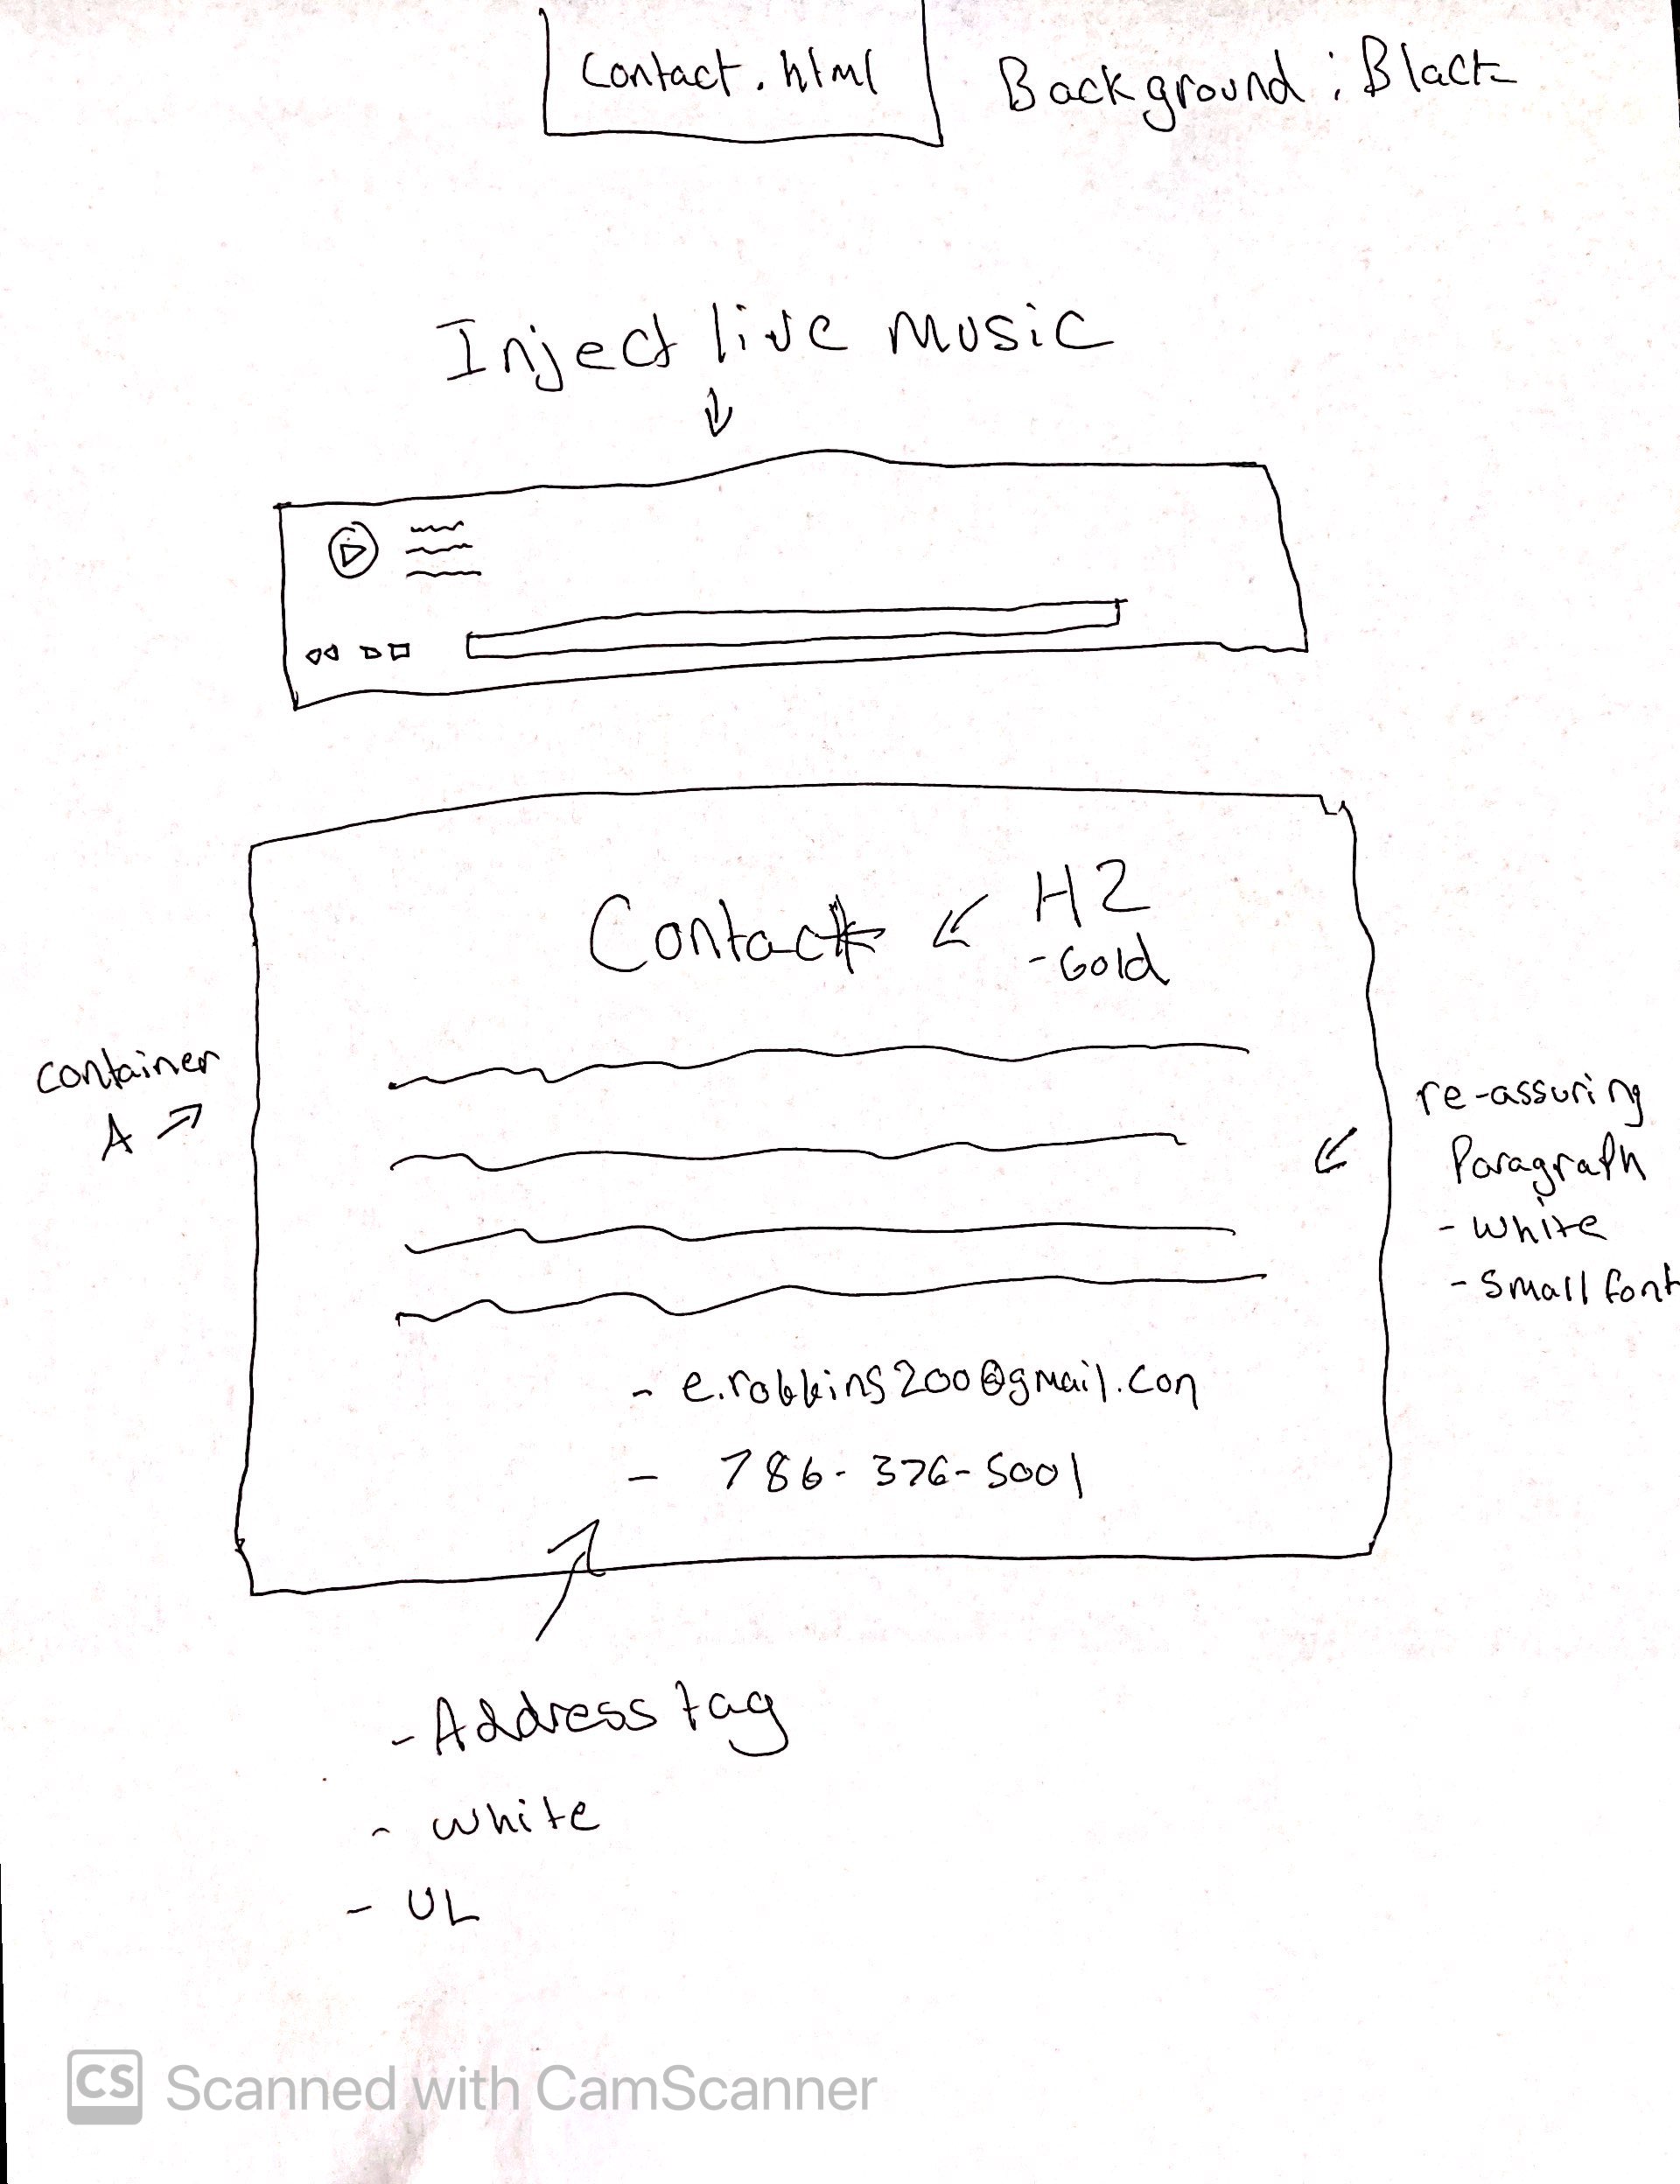 Contact.html
Background: Black
Inject live music
Contact
H2
-Gold
container
A
re-assuring
Paragraph
- white
- Small font
- e.robbins200@gmail.con
- 786-376-5001
- Address tag
- white
- UL
CS Scanned with CamScanner